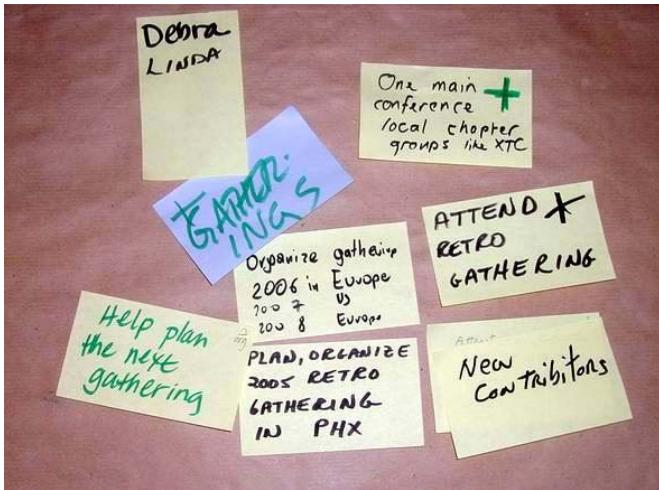 Debra
LINDA
One main +
conference
local chapter
groups like XTC
GATHER-
INGS
Organize gathering
2006 in Europe
2007 US
2008 Europe
ATTEND
RETRO
GATHERING
Help plan
the next
gathering
PLAN, ORGANIZE
2005 RETRO
GATHERING
IN PHX
New
Contribitors